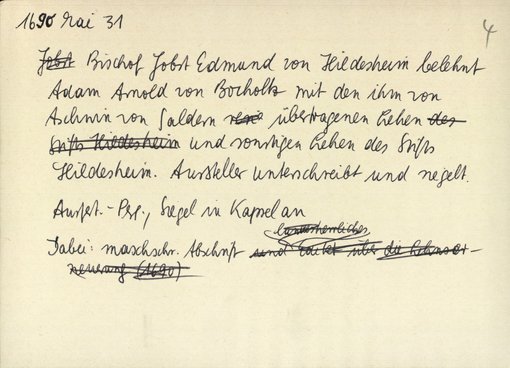 1690 Mai 31
4
Jobst Bischof Jobst Edmund von Hildesheim belehnt
Adam Arnold von Bocholtz mit den ihm von
Aschwin von Saldern übertragenen Lehen des
Stifts Hildesheim und sonstigen Lehen des Stifts
Hildesheim. Aussteller unterschreibt und siegelt.
Ausfert.-Perg., Siegel in Kapsel an
landesherrliches
Dabei: maschschr. Abschrift und über die Lehnser-
neuerung (1690)